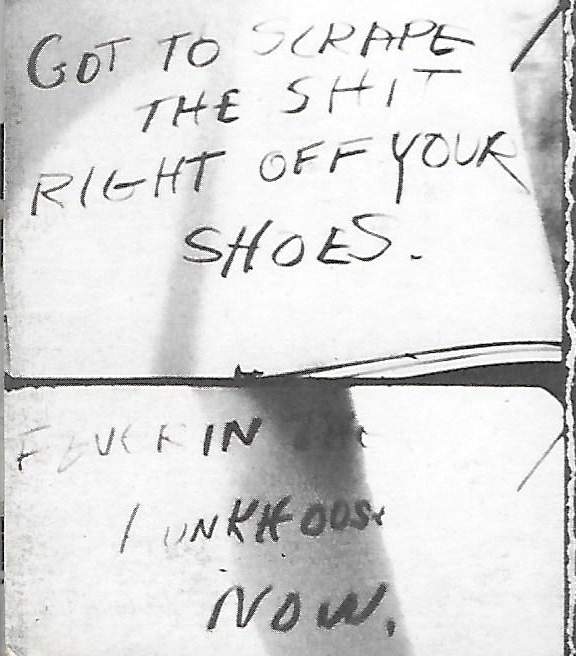 GOT TO SCRAPE
THE SHIT
RIGHT OFF YOUR
SHOES.
FEVER IN THE
FUNKHOUSE
NOW.